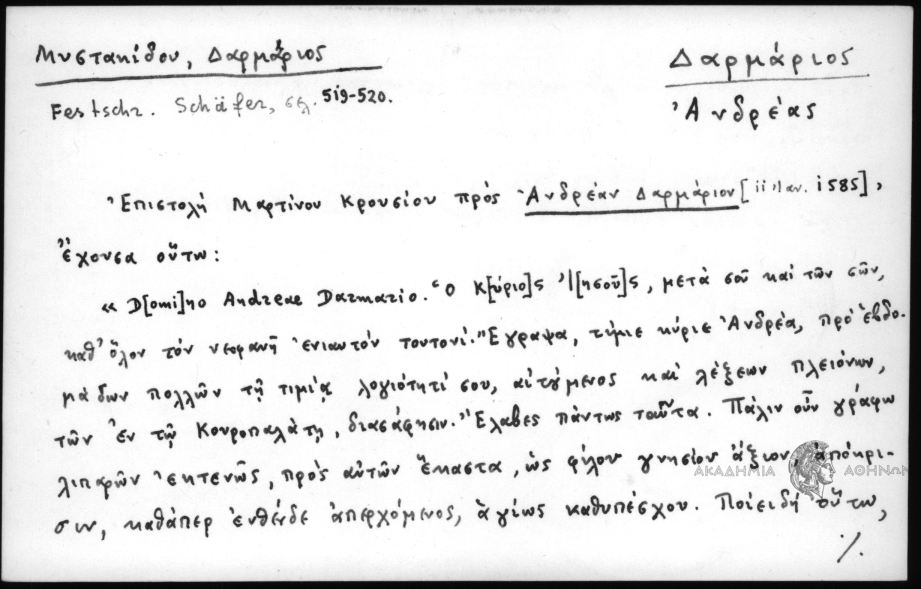 Μυστακίδου, Δαρμάριος
Δαρμάριος
Festschr. Schäfer, σελ. 519-520.
Ἀνδρέας
Ἐπιστολὴ Μαρτίνου Κρουσίου πρὸς Ἀνδρέαν Δαρμάριον [11 Ἰαν. 1585],
ἔχουσα οὕτω:
« D[omi]no Andreae Darmario. Ὁ Κ[ύριο]ς Ἰ[ησοῦ]ς, μετὰ σοῦ καὶ τῶν σῶν,
καθ' ὅλον τὸν νεοφανῆ ἐνιαυτὸν τουτονί. Ἔγραψα, τίμιε κύριε Ἀνδρέα, πρὸ ἑβδο-
μάδων πολλῶν τῇ τιμίᾳ λογιότητί σου, αἰτούμενος καὶ λέξεων πλειόνων,
τῶν ἐν τῷ Κουροπαλάτῃ, διασάφησιν. Ἔλαβες πάντως ταῦτα. Πάλιν οὖν γράφω
λιπαρῶν ἐκτενῶς, πρὸς αὐτῶν ἕκαστα, ὡς φίλου γνησίου ἄξιον, ἀπόκρι-
ΑΚΑΔΗΜΙΑ ΑΘΗΝΩΝ
σιν, καθάπερ ἐνθένδε ἀπερχόμενος, ἁγίως καθυπέσχου. Ποίει δὴ οὕτω,
%